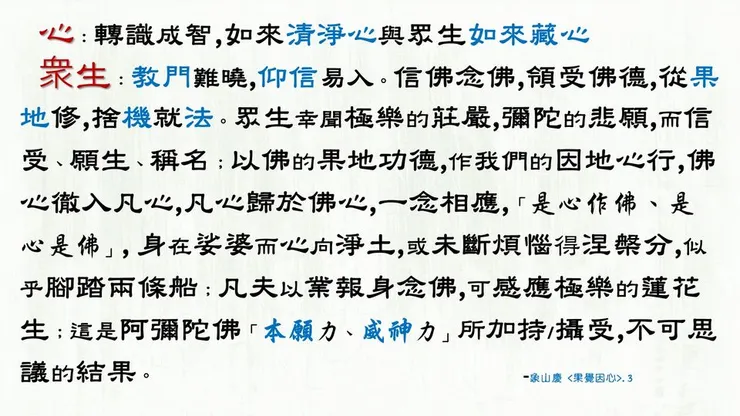 心：轉識成智,如來清淨心與眾生如來藏心
眾生：教門難曉,仰信易入。信佛念佛,領受佛德,從果
地修,捨機就法。眾生幸聞極樂的莊嚴,彌陀的悲願,而信
受、願生、稱名；以佛的果地功德,作我們的因地心行,佛
心徹入凡心,凡心歸於佛心,一念相應,「是心作佛、是
心是佛」,身在娑婆而心向淨土,或未斷煩惱得涅槃分,似
乎腳踏兩條船；凡夫以業報身念佛,可感應極樂的蓮花
生；這是阿彌陀佛「本願力、威神力」所加持/攝受,不可思
議的結果。
-象山慶 <果覺因心>.3